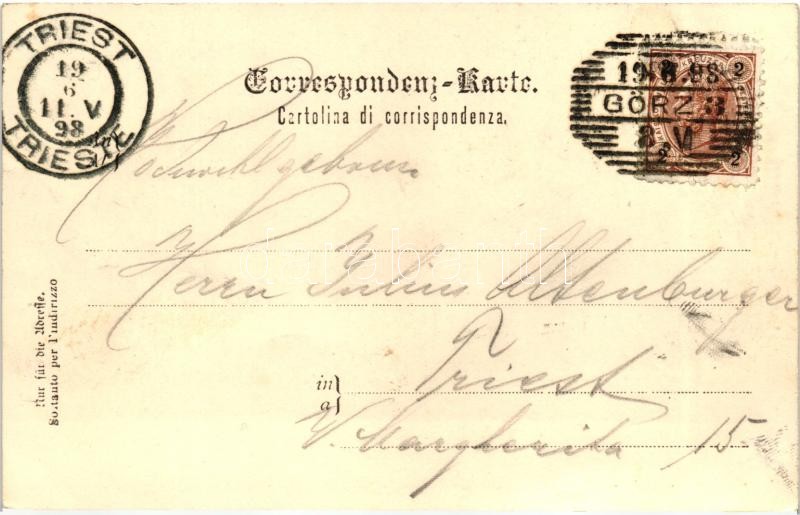 TRIEST
19
6
11. V
98
TRIEST
Correspondenz-Karte.
Cartolina di corrispondenza.
19.6.98
GÖRZ 3
8 V
2 2
2 2
Hochwohlgeboren
Herrn Julius Altenburger
in
a
Triest
V. Margherita 15
Nur für die Adresse.
Soltanto per l'indirizzo
darabanth